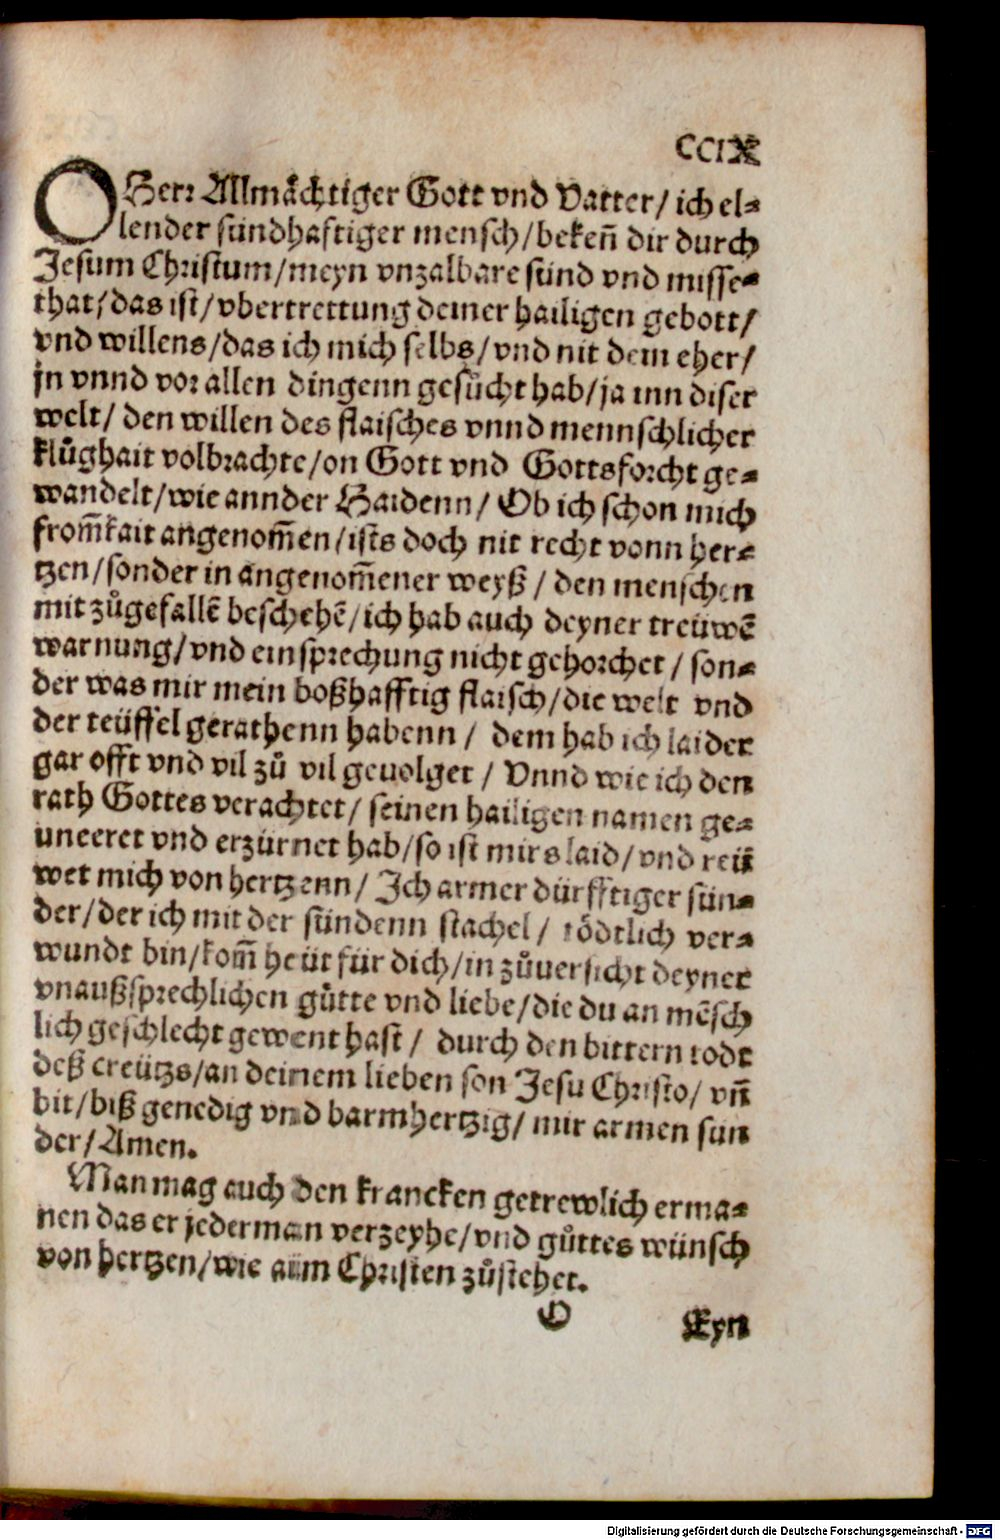 CCIX
O Herr Allmåchtiger Gott vnd Vatter/ ich el⸗
lender sündhafftiger mensch/bekeñ dir durch
Jesum Christum/meyn vnzalbare sünd vnd misse⸗
that/das ist/vbertrettung deiner hailigen gebott/
vnd willens/das ich mich selbs/vnd nit dem eher/
jn vnnd vor allen dingenn gesůcht hab/ja inn diser
welt/ den willen des flaisches vnnd mennschlicher
klůghait volbrachte/on Gott vnd Gottsforcht ge⸗
wandelt/wie annder Haidenn/ Ob ich schon mich
from̃kait angenom̃en/ists doch nit recht vonn her⸗
tzen/sonder in angenom̃ener weyß/ den menschen
mit zůgefallē beschehē/ich hab auch deyner treüwē
warnung/vnd einsprechung nicht gehorchet/ son⸗
der was mir mein boßhafftig flaisch/die welt vnd
der teüffel gerathenn habenn/ dem hab ich laider
gar offt vnd vil zů vil geuolget/ Vnnd wie ich den
rath Gottes verachtet/ seinen hailigen namen ge⸗
uneeret vnd erzürnet hab/so ist mirs laid/vnd reü
wet mich von hertzenn/ Jch armer dürfftiger sün⸗
der/der ich mit der sündenn stachel/ tödtlich ver⸗
wundt bin/kom̃ heüt für dich/in zůuersicht deyner
vnaußsprechlichen gůtte vnd liebe/die du an mēsch
lich geschlecht gewent hast/ durch den bittern todt
deß creützs/an deinem lieben son Jesu Christo/ vñ
bit/biß genedig vnd barmhertzig/ mir armen sun
der/Amen.
Man mag auch den krancken getrewlich erma⸗
nen das er jederman verzeyhe/vnd gůttes wünsch
von hertzen/wie aim Christen zůstehet.
O Eyn
Digitalisierung gefördert durch die Deutsche Forschungsgemeinschaft - DFG